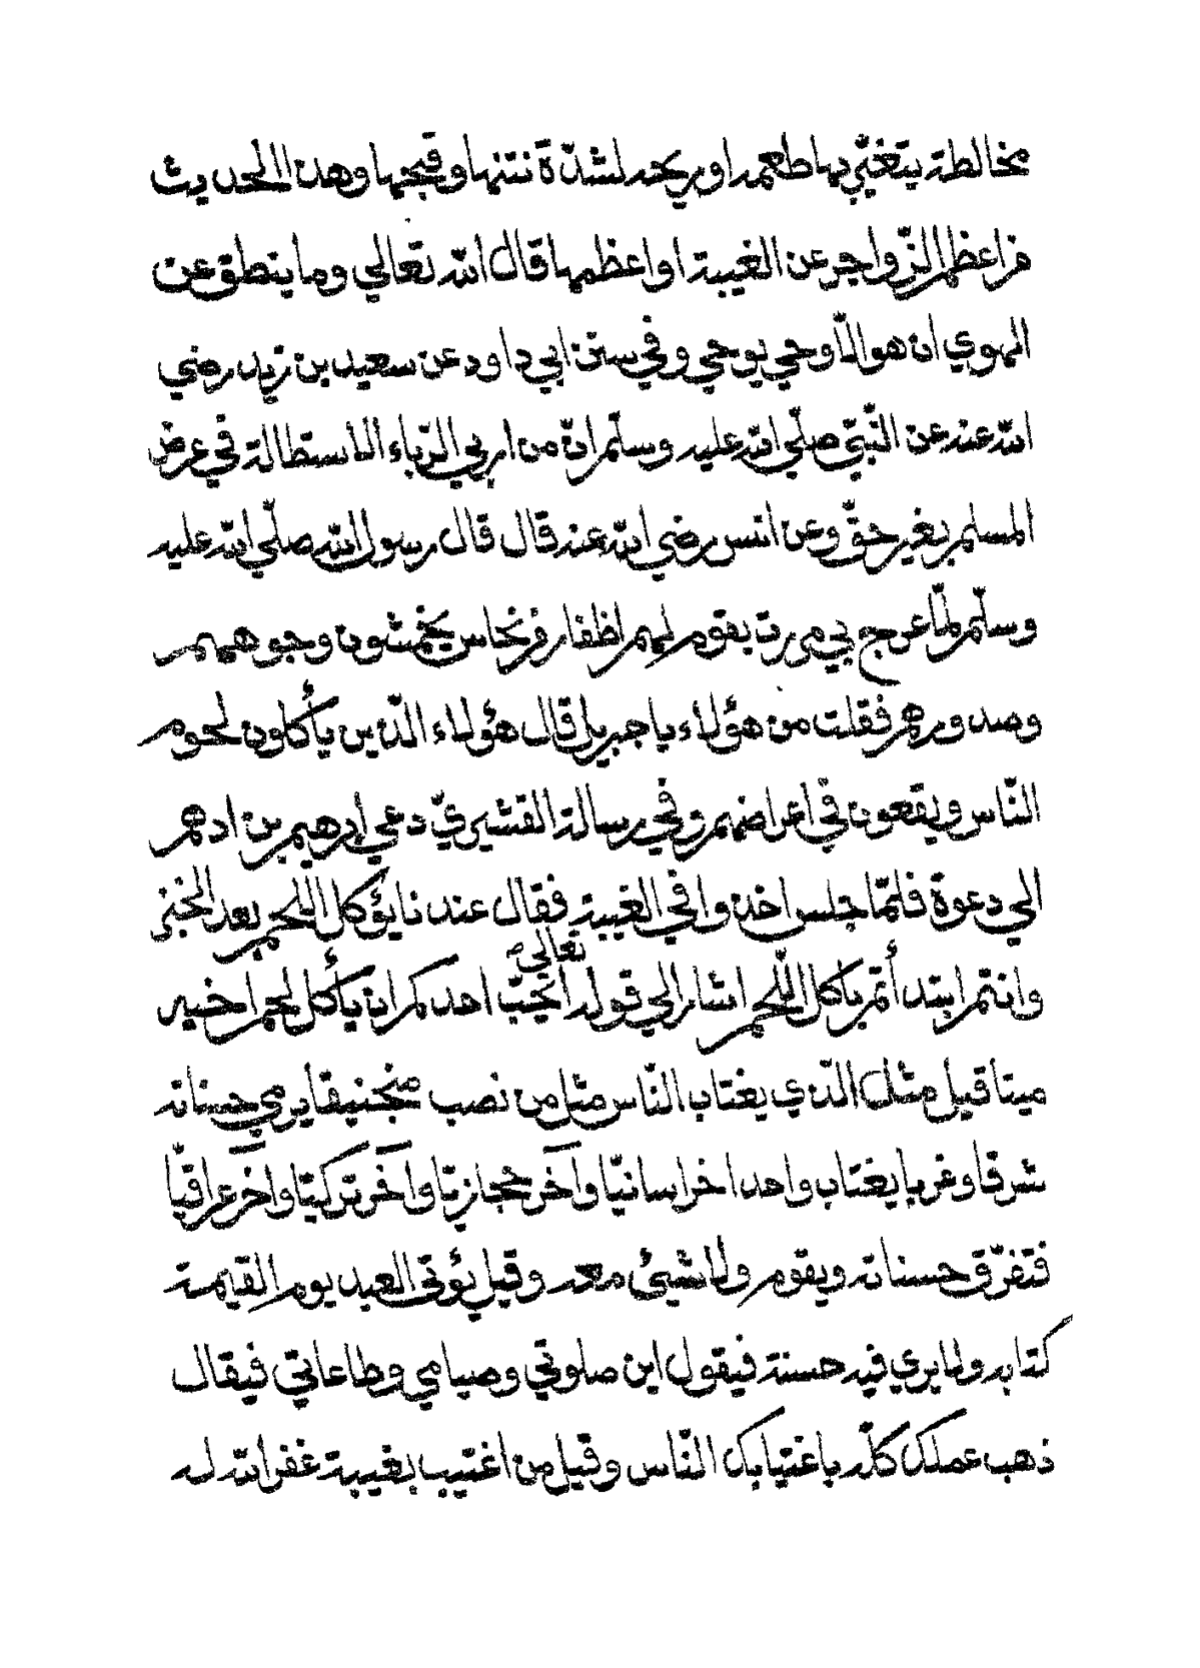 مخالطة يتغيّر بها طعمه او ريحه لشدّة نتنها وقبحها وهذا الحديث
من اعظم الزّواجر عن الغيبة او اعظمها قال الله تعالي وما ينطق عن
الهوي ان هو الّا وحي يوحي وفي سنن ابي داود عن سعيد بن زيد رضي
الله عنه عن النّبيّ صلّي الله عليه وسلّم انّ من اربي الرّباء الاستطالة في عرض
المسلم بغير حقّ وعن انس رضي الله عنه قال قال رسول الله صلّي الله عليه
وسلّم لمّا عرج بي مررت بقوم لهم اظفار من نحاس يخمشون وجوههم
وصدورهم فقلت من هؤلاء يا جبريل قال هؤلاء الّذين يأكلون لحوم
النّاس ويقعون في اعراضهم وفي رسالة القشيريّ دعي إبرهيم بن ادهم
الي دعوة فلمّا جلس اخذوا في الغيبة فقال عندنا يؤكل اللحم بعد الخبز
وانتم ابتدأتم باكل اللّحم اشار الي قوله تعالي ايحبّ احدكم ان يأكل لحم اخيه
ميتا قيل مثل الّذي يغتاب النّاس مثل من نصب منجنيقا يرمي حسناته
شرقا وغربا يغتاب واحدا خراسانيّا وآخر حجازيّا وآخر تركيّا وآخر عراقيّا
فتفرّق حسناته ويقوم ولا شيئ معه وقيل يؤتي العبد يوم القيمة
كتابه ولا يري فيه حسنة فيقول اين صلوتي وصيامي وطاعاتي فيقال
ذهب عملك كلّه باغتيابك النّاس وقيل من اغتيب بغيبة غفر الله له